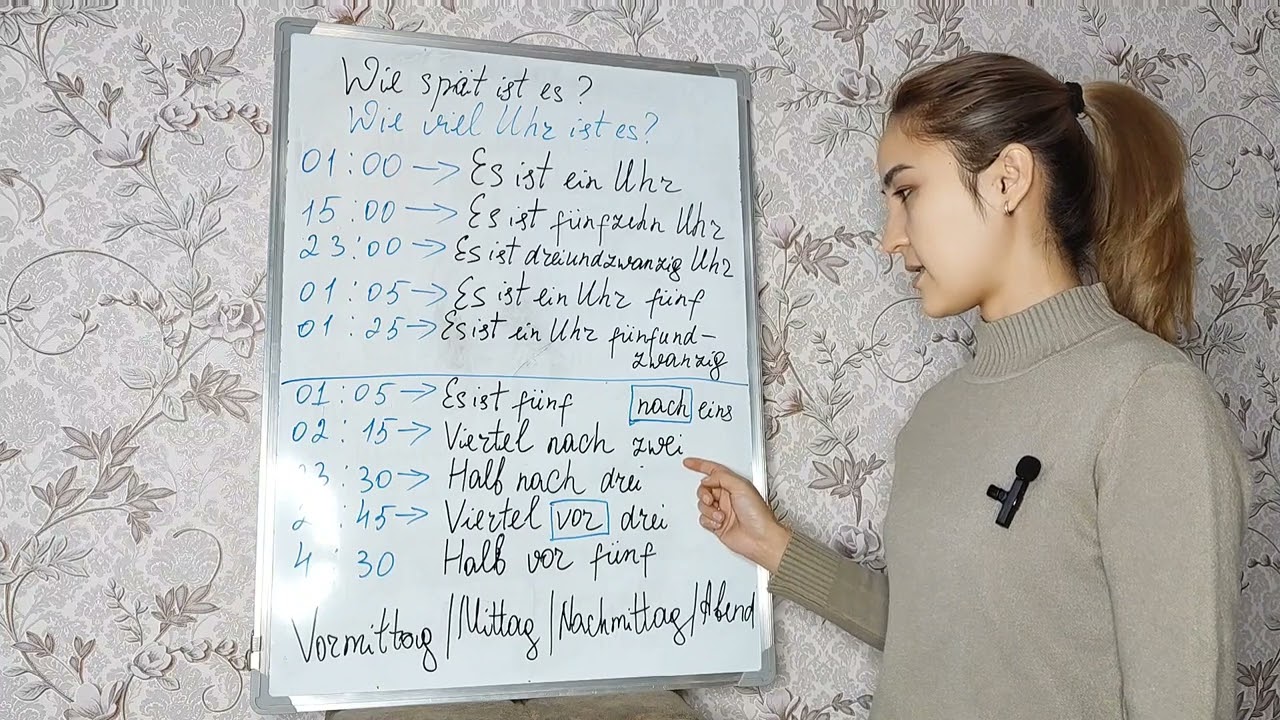 Wie spät ist es?
Wie viel Uhr ist es?
01:00 → Es ist ein Uhr
15:00 → Es ist fünfzehn Uhr
23:00 → Es ist dreiundzwanzig Uhr
01:05 → Es ist ein Uhr fünf
01:25 → Es ist ein Uhr fünfund-
zwanzig
01:05 → Es ist fünf nach eins
02:15 → Viertel nach zwei
:30 → Halb nach drei
:45 → Viertel vor drei
4:30 Halb vor fünf
Vormittag | Mittag | Nachmittag | Abend